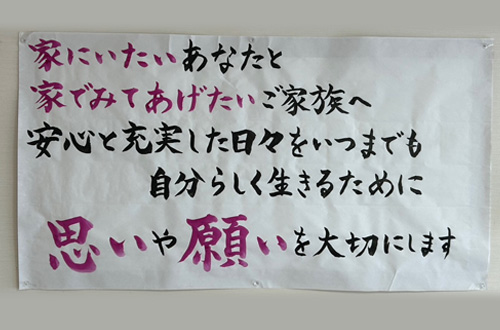 家にいたいあなたと
家でみてあげたいご家族へ
安心と充実した日々をいつまでも
自分らしく生きるために
思いや願いを大切にします